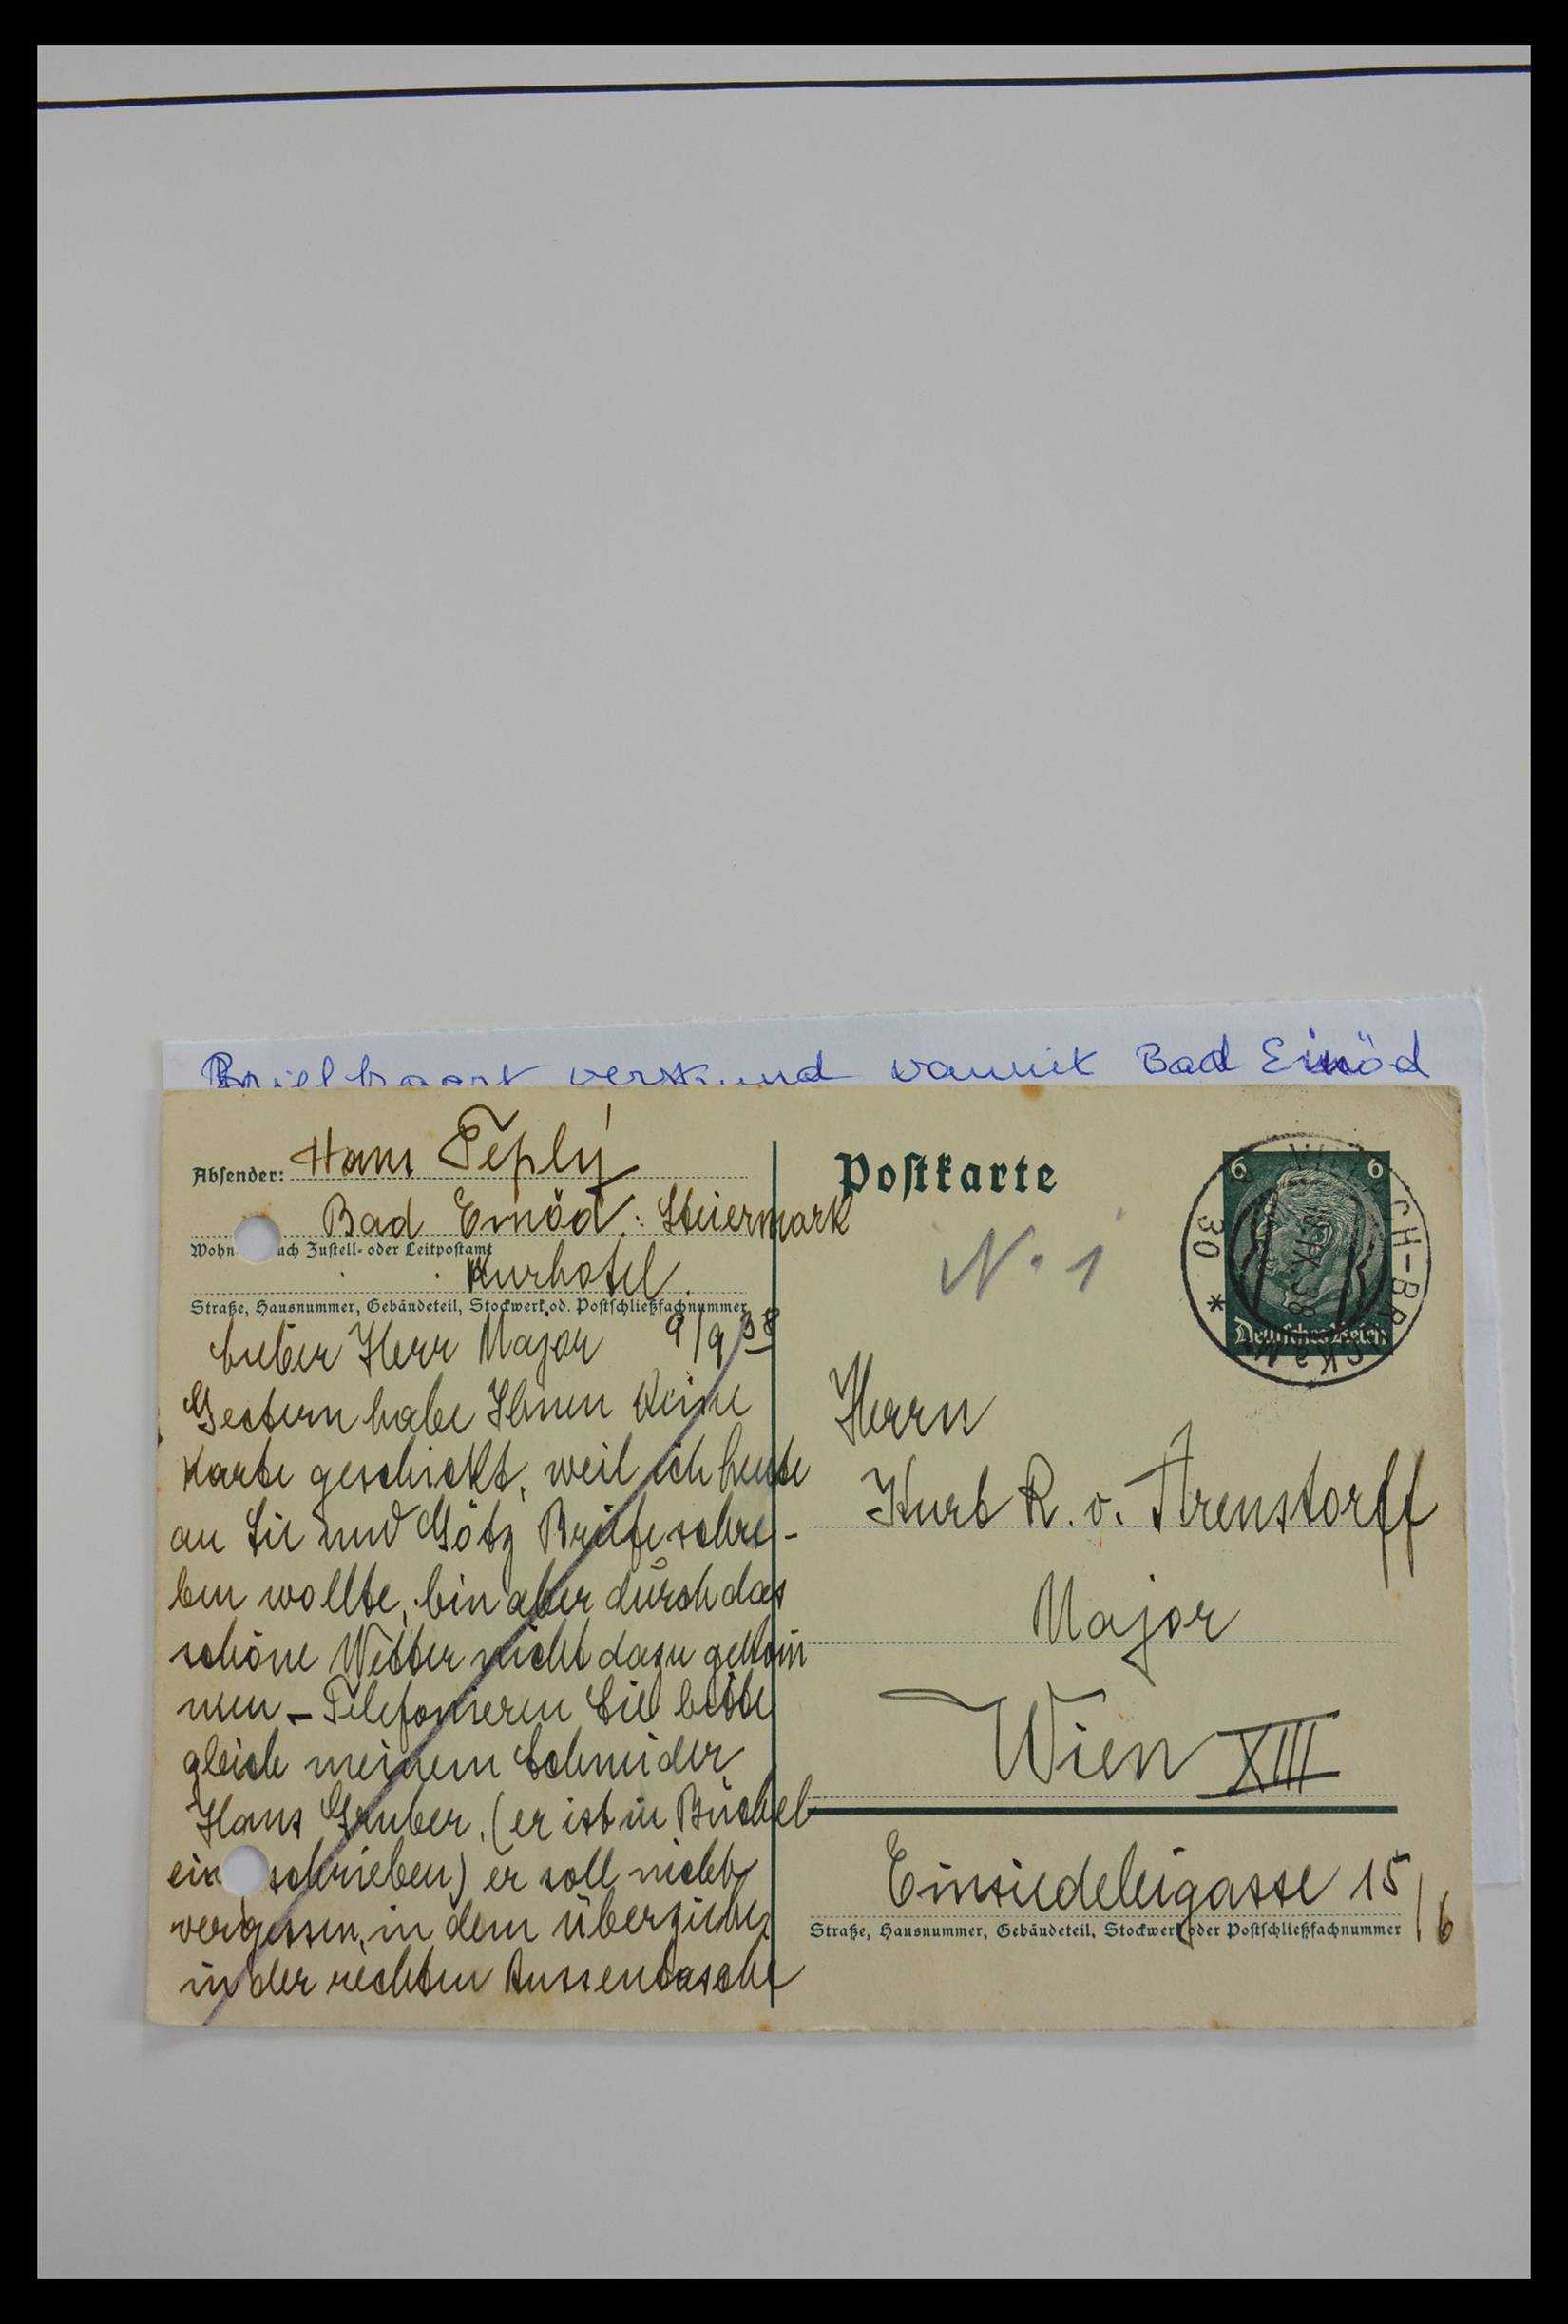 verstuurd vanuit Bad Einöd
Absender: Hans Teplý
Bad Einöd. Steiermark
Wohn ach Zustell- oder Leitpostamt
Kurhotel.
Straße, Hausnummer, Gebäudeteil, Stockwerk od. Postschließfachnummer
Lieber Herr Major 9/9 38
Gestern habe Ihnen keine
Karte geschickt, weil ich heute
an Sie und Götz Briefe schre-
ben wollte, bin aber durch das
schöne Wetter nicht dazu gekom
men – Telefonieren Sie bitte
gleich meinem Schneider
Hans Gruber, (er ist in Büchel
ein schrieben) er soll nicht
vergessen, in dem Überzieher
in der rechten Aussentasche
Postkarte
No 1
6 6
Deutsches Reich
30 *
Herrn
Kurt R. v. Arenstorff
Major
Wien XIII
Einsiedeleigasse 15/6
Straße, Hausnummer, Gebäudeteil, Stockwerk oder Postschließfachnummer